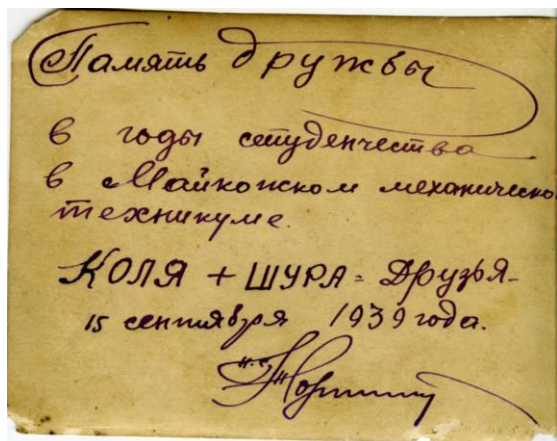 Память дружбы
в годы студенчества
в Майкопском механическо
техникуме.
КОЛЯ + ШУРА = Друзья
15 сентября 1939 года.